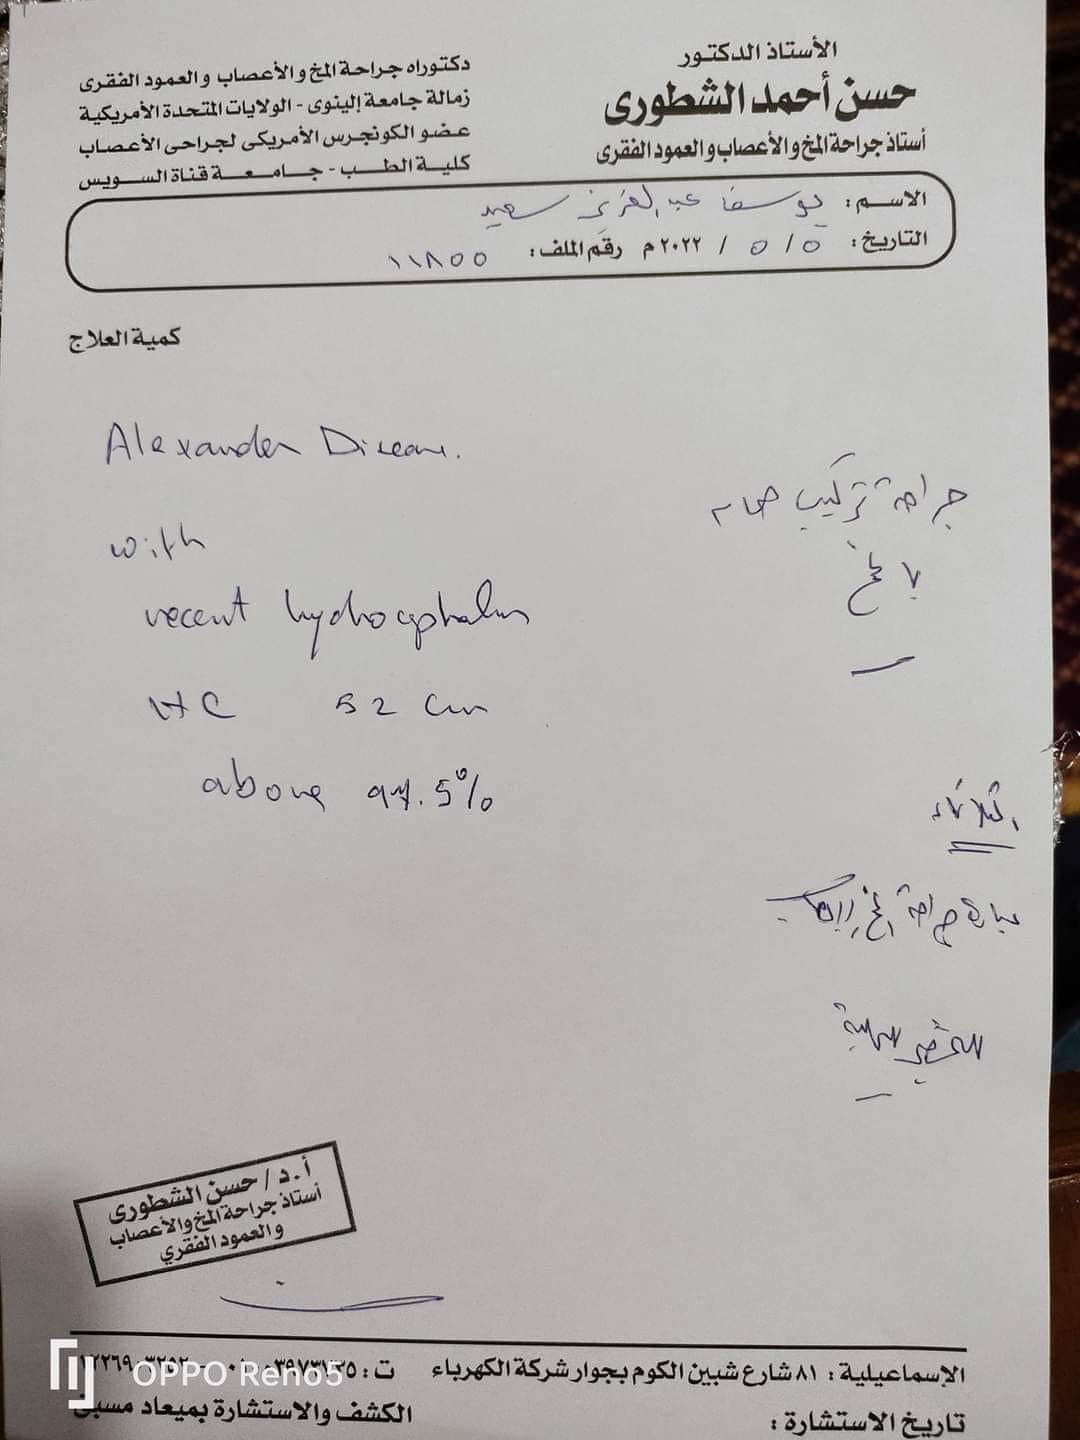 الأستاذ الدكتور
حسن أحمد الشطورى
أستاذ جراحة المخ والأعصاب والعمود الفقرى
دكتوراه جراحة المخ والأعصاب والعمود الفقرى
زمالة جامعة إلينوى - الولايات المتحدة الأمريكية
عضو الكونجرس الأمريكى لجراحى الأعصاب
كلية الطب - جامعة قناة السويس
الاسم: يوسف عبد العزيز سعيد
التاريخ: ٥ / ٥ / ٢٠٢٢ م رقم الملف: ١١٨٥٥
كمية العلاج
Alexander Disease.
with
recent hydrocephalus
HC 52 cm
above 97.5%
جراحة تركيب صمام
بالمخ
الثلاثاء
جراحة المخ
أ.د / حسن الشطورى
أستاذ جراحة المخ والأعصاب
والعمود الفقري
الإسماعيلية: ٨١ شارع شبين الكوم بجوار شركة الكهرباء ت:
الكشف والاستشارة بميعاد مسبق
تاريخ الاستشارة:
OPPO Reno5